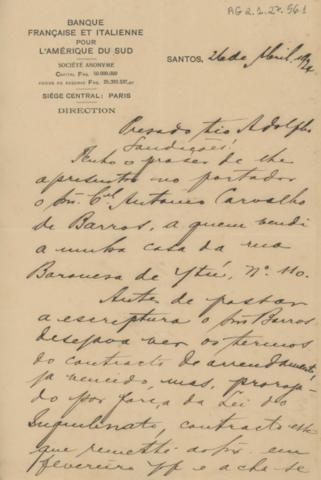 AG 2.1.27.561
BANQUE
FRANÇAISE ET ITALIENNE
POUR
L'AMÉRIQUE DU SUD
SOCIÉTÉ ANONYME
CAPITAL FRS. 50.000.000
SIÈGE CENTRAL: PARIS
DIRECTION
SANTOS, 26 de Abril
Presado tio Adolpho
Saudações!
Tenho o praser de lhe
apresentar no portador
o Snr. Cel Antonio Carvalho
de Barros, a quem vendi
a minha casa da rua
Baroneza de Ytú, Nº 110.
Antes de passar
a escriptura o Snr Barros
desejava ver os termos
do contracto de arrendamento,
ja vencido, mas, proroga-
do por força da Lei do
Inquilinato, contracto este
que remetti ao Snr. em
fevereiro pp e acha-se